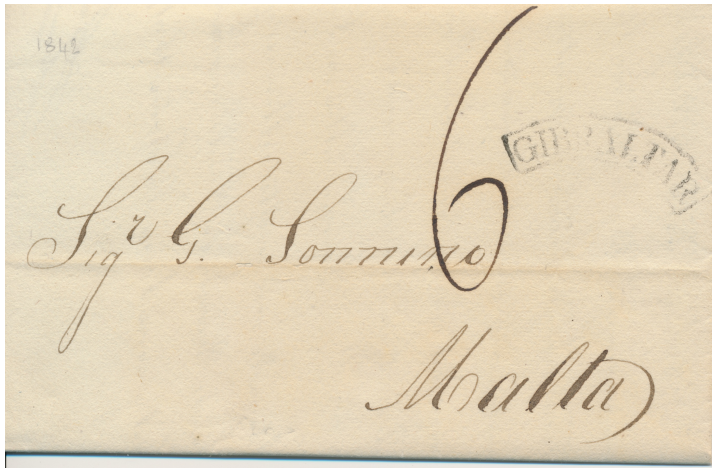 1842
GIBRALTAR
6
Sigr G. Sonnino
Malta